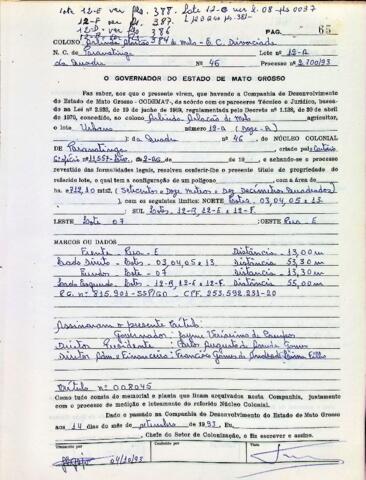 lote 12-E ver fls. 388. Lote 12-B ver L. 08 fls 0097
12-F ver fls. 387.
12-A ver fls. 386
PAG. 65
COLONO Arlinda de Melo - B.C. Divorciada
N. C. de Paranatinga Lote 12-A
da Quadra Nº 46 Processo nº 2.700/93
O GOVERNADOR DO ESTADO DE MATO GROSSO
Faz saber, aos que o presente virem, que havendo a Companhia de Desenvolvimento
do Estado de Mato Grosso - CODEMAT-, de acôrdo com os pareceres Técnico e Jurídico, basea-
do na Lei nº 2.933, de 13 de junho de 1969, regulamentada pelo Decreto nº 1.138, de 20 de abril
de 1970, concedido ao colono Arlinda de Melo agricultor,
o lote Urbano nº 12-A (Doze-A)
da Quadra nº 46, DO NÚCLEO COLONIAL
DE Paranatinga, criado pelo Cartório
6º ofício nº 11.557 de 19 , e achando-se o processo
revestido das formalidades legais, resolvem conferir-lhe o presente título de propriedade do
referido lote, o qual tem a configuração de um polígono com a área de
ha 712,10 mts2 (Setecentos e Doze Metros e Dez Decímetros Quadrados)
, com os seguintes limites: NORTE Lotes, 03, 04, 05 e 13
SUL Lotes, 12-B, 12-E e 12-F.
LESTE Lote 07 : OESTE Rua - E
MARCOS OU DADOS
Frente - Rua - E Distância - 13,00 m
Lado Direito - Lotes - 03, 04, 05 e 13 Distância 53,30 m
Fundos - Lote - 07 Distância - 13,30 m
Lado Esquerdo - Lotes - 12-B, 12-E e 12-F Distância 55,00 m
R.G. nº 815.901 - SSP/GO - CPF. 253.592.231-20
Assinaram o presente título:
Governador - Jayme Veríssimo de Campos
Diretor Presidente - Paulo Augusto de
Diretor Adm. e Financeiro - Francisco Gomes de Andrade Lima Filho
Título nº 002045
Como tudo consta do memorial e planta que ficam arquivados nesta Companhia, juntamente
com o processo de medição e loteamento do referido Núcleo Colonial.
Dado e passado na Companhia de Desenvolvimento do Estado de Mato Grosso
aos 14 dias do mês de setembro de 1993, Eu,
, Chefe do Setor de Colonização, o fiz escrever e assino.
Datilografado por Conferido por Visto
04/10/93